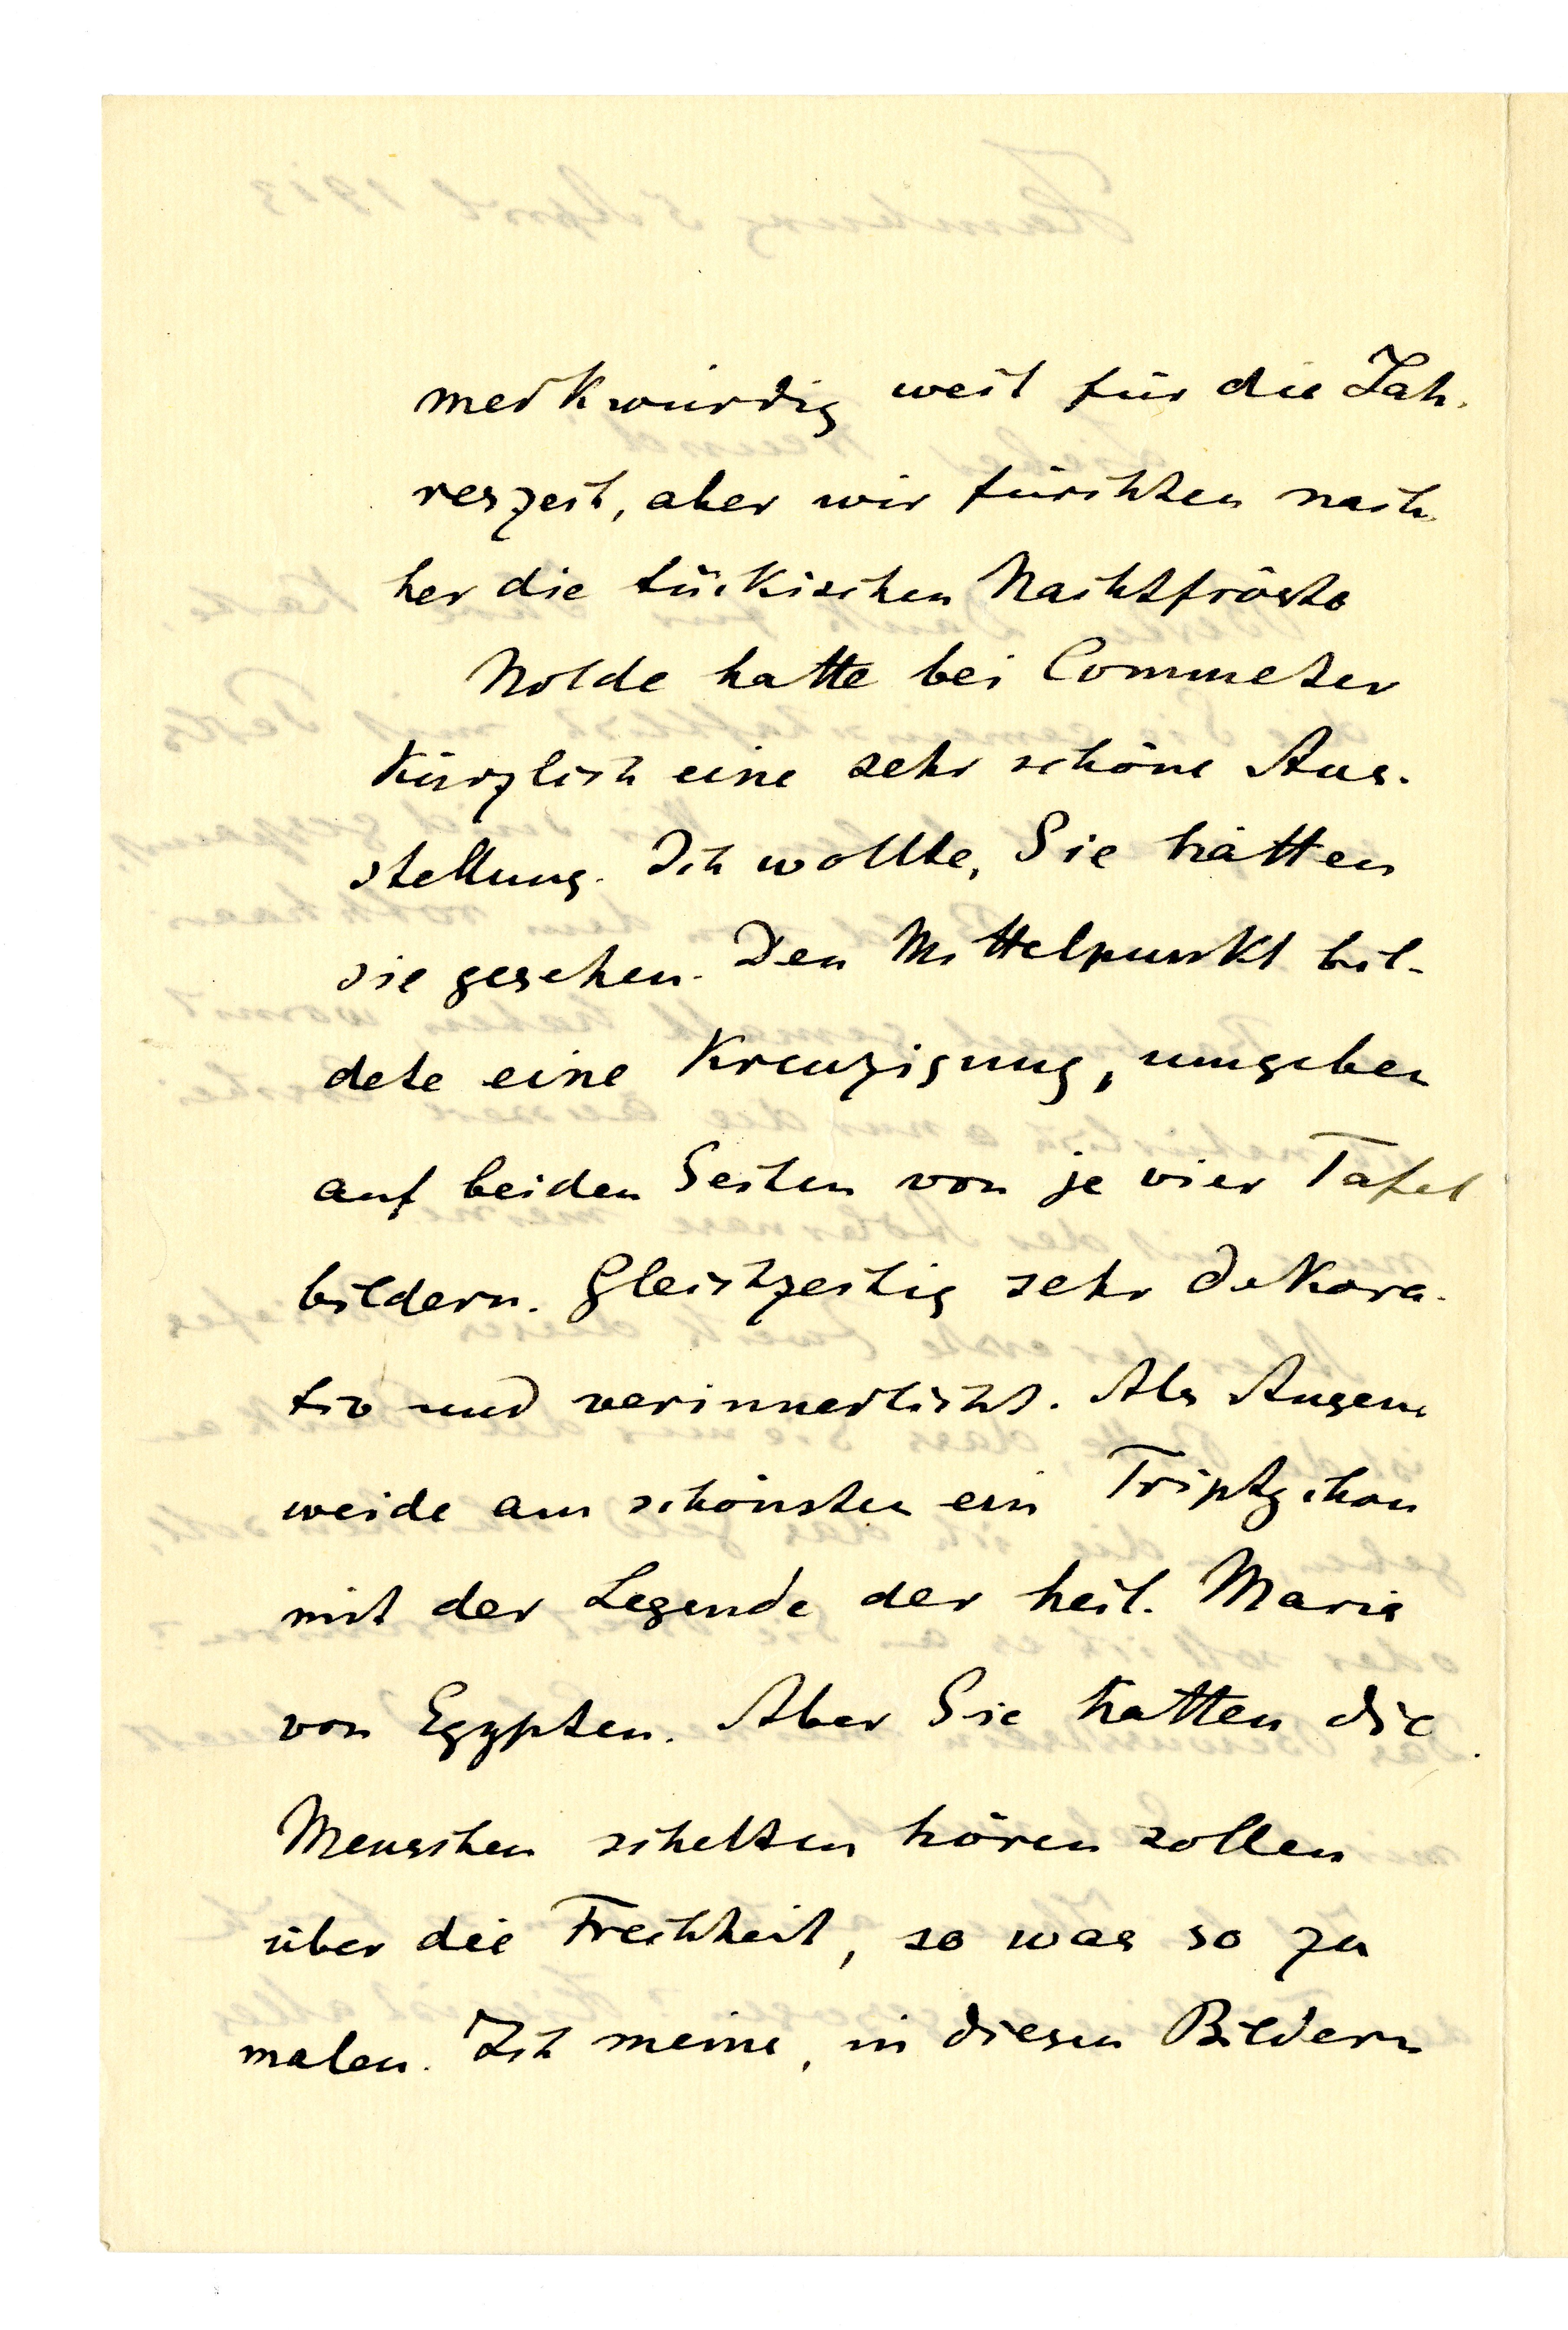 merkwürdig weit für die Jah-
reszeit, aber wir fürchten nach
her die tückischen Nachtfröste
Nolde hatte bei Commeter
kürzlich eine sehr schöne Aus-
stellung. Ich wollte, Sie hätten
sie gesehen. Den Mittelpunkt bil-
dete eine Kreuzigung, umgeben
auf beiden Seiten von je vier Tafel
bildern. Gleichzeitig sehr dekora-
tiv und verinnerlicht. Als Augen
weide am schönsten ein Triptychon
mit der Legende der heil. Maria
von Egypten. Aber Sie hätten die
Menschen schelten hören sollen
über die Frechheit, so was so zu
malen. Ich meine, in diesen Bildern